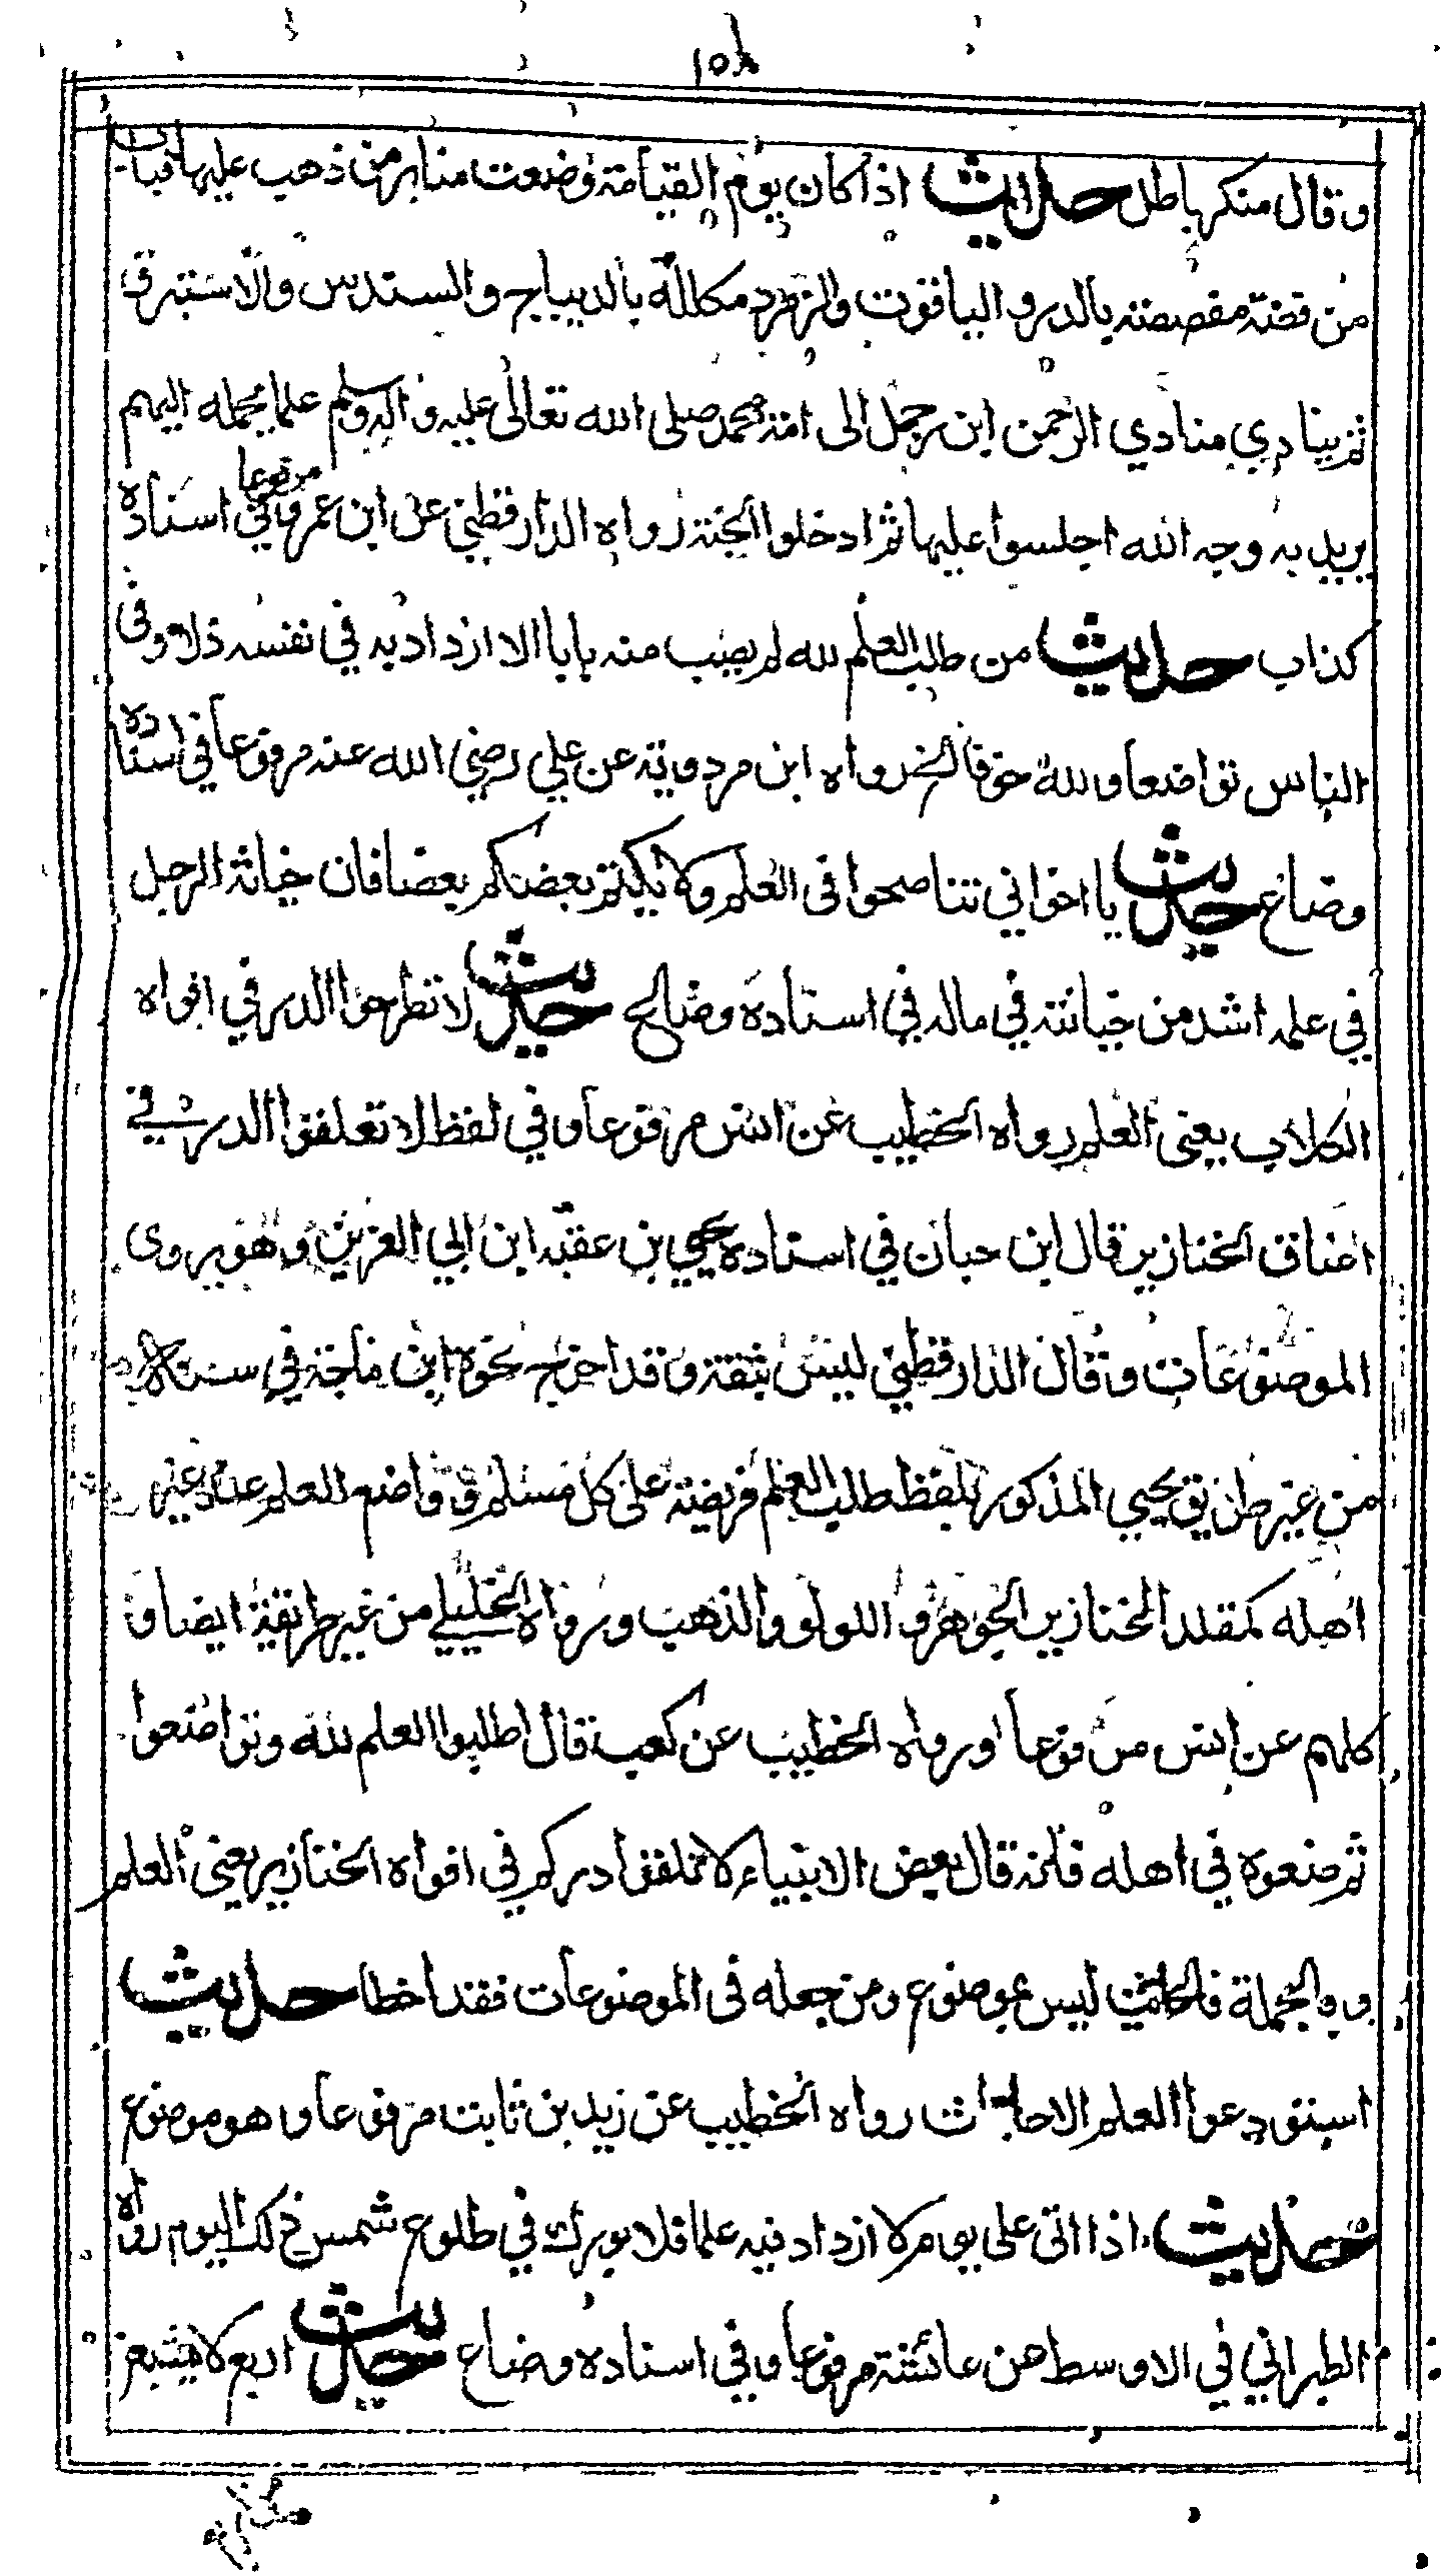 ١٥٨
وقال منكر باطل حديث اذا كان يوم القيامة وضعت منابر من ذهب عليها قباب
من فضة مفصصة بالدر والياقوت والزمرد مكللة بالديباج والسندس والاستبرق
ثم ينادي منادي الرحمن اين من حمل الى امة محمد صلى الله تعالى عليه واله وسلم علما يحمله اليهم
يريد به وجه الله اجلسوا عليها ثم ادخلوا الجنة رواه الدارقطني عن ابن عمر مرفوعا وفي اسناده
كذاب حديث من طلب العلم لله لم يصب منه بابا الا ازداد به في نفسه ذلا وفى
الناس تواضعا ولله خوفا الخ رواه ابن مردويه عن علي رضي الله عنه مرفوعا في اسناده
وضاع حديث يا اخواني تناصحوا فى العلم ولا يكتم بعضكم بعضا فان خيانة الرجل
في علمه اشد من خيانته في ماله في اسناده وضاع حديث لا تطرحوا الدر في افواه
الكلاب يعنى العلم رواه الخطيب عن انس مرفوعا وفي لفظ لا تعلقوا الدر في
اعناق الخنازير قال ابن حبان في اسناده يحيي بن عقبه ابن ابي العزيز وهو يروى
الموضوعات وقال الدارقطني ليس بثقة وقد اخرج نحوه ابن ماجة في سننه
من غير طريق يحيي المذكور بلفظ طلب العلم فريضة على كل مسلم و واضع العلم عند غير
اهله كمقلد الخنازير الجوهر و اللولو والذهب ورواه الخليلي من غير طريقة ايضا و
كلهم عن انس مرفوعا ورواه الخطيب عن كعب قال اطلبوا العلم لله وتواضعوا
ثم ضعوه في اهله فانه قال بعض الانبياء لا تلقوا دركم في افواه الخنازير يعنى العلم
وبالجملة فالحديث ليس بموضوع ومن جعله فى الموضوعات فقد اخطا حديث
استودعوا العلم الاحداث رواه الخطيب عن زيد بن ثابت مرفوعا وهو موضوع
حديث اذا اتى على يوم لا ازداد فيه علما فلا بورك في طلوع شمس ذلك اليوم رواه
الطبراني في الاوسط عن عائشة مرفوعا وفي اسناده وضاع حديث اربع لا يشبعن